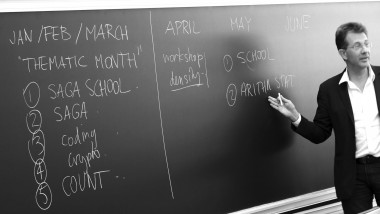 JAN/FEB/MARCH
"THEMATIC MONTH"
① SAGA SCHOOL
② SAGA
③ coding
④ crypto
⑤ COUNT
APRIL
workshop
density
MAY
① SCHOOL
② ARITHM STAT
JUNE